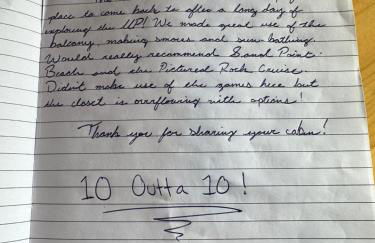 place to come back to after a long day of
exploring the UP! We made great use of the
balcony, making smores and sun bathing.
Would really recommend Sand Point
Beach and the Pictured Rock Cruise.
Didn't make use of the games here but
the closet is overflowing with options!
Thank you for sharing your cabin!
10 Outta 10!